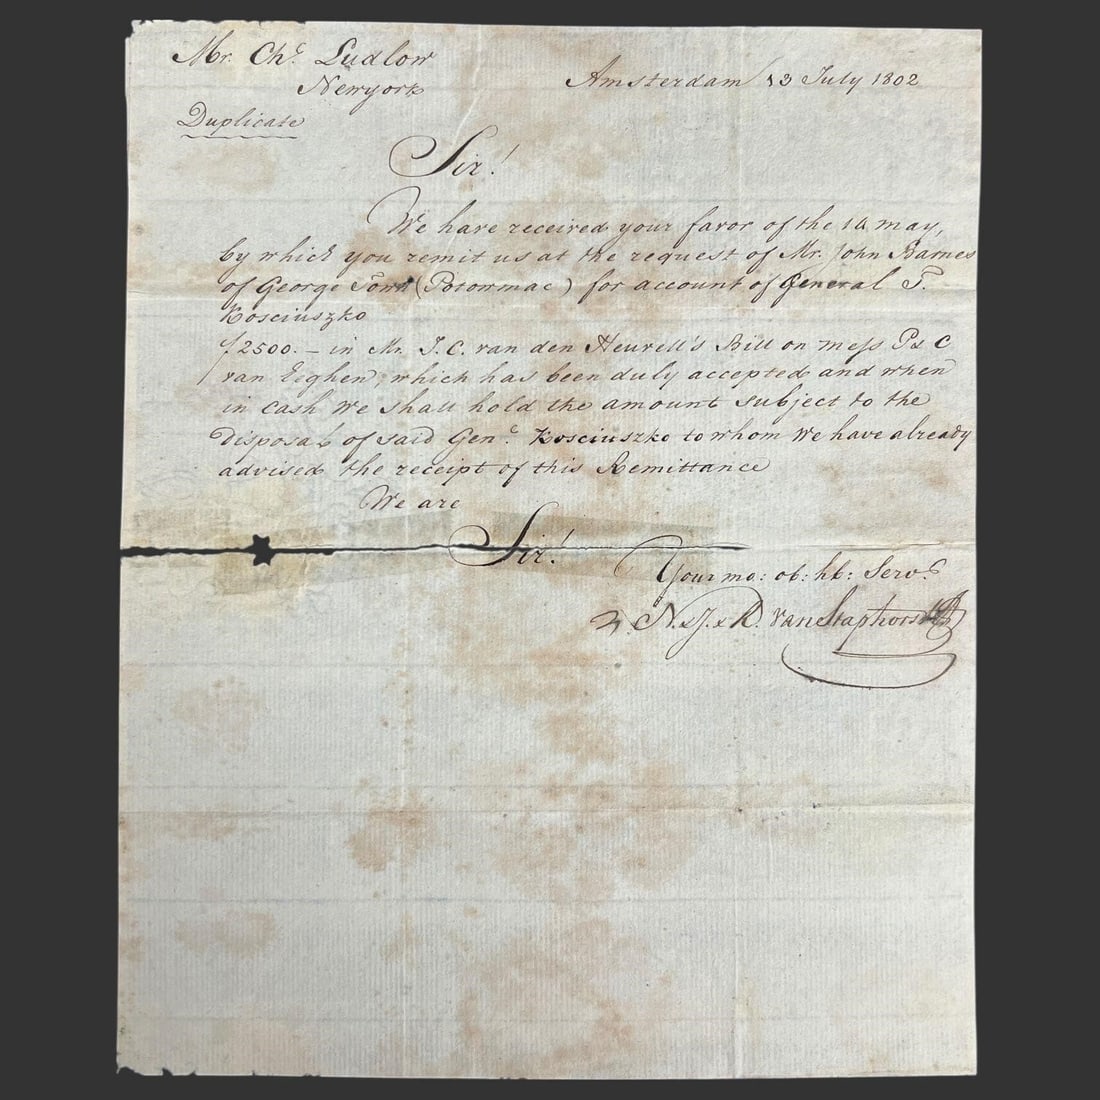 Mr. Chs. Ludlow
Newyork
Amsterdam 13 July 1802
Duplicate
Sir!
We have received your favor of the 14 may,
by which you remit us at the request of Mr. John Barnes
of George Town (Potowmac) for account of General T.
Kosciuszko
f 2500.– in Mr. J. C. van den Heuvell's Bill on mess P & C
van Eighen, which has been duly accepted and when
in cash we shall hold the amount subject to the
disposal of said Genl. Kosciuszko to whom we have already
advised the receipt of this Remittance
We are
Sir!
Your mo: ob: hb: Servs.
N. & J. & R. van Staphorst